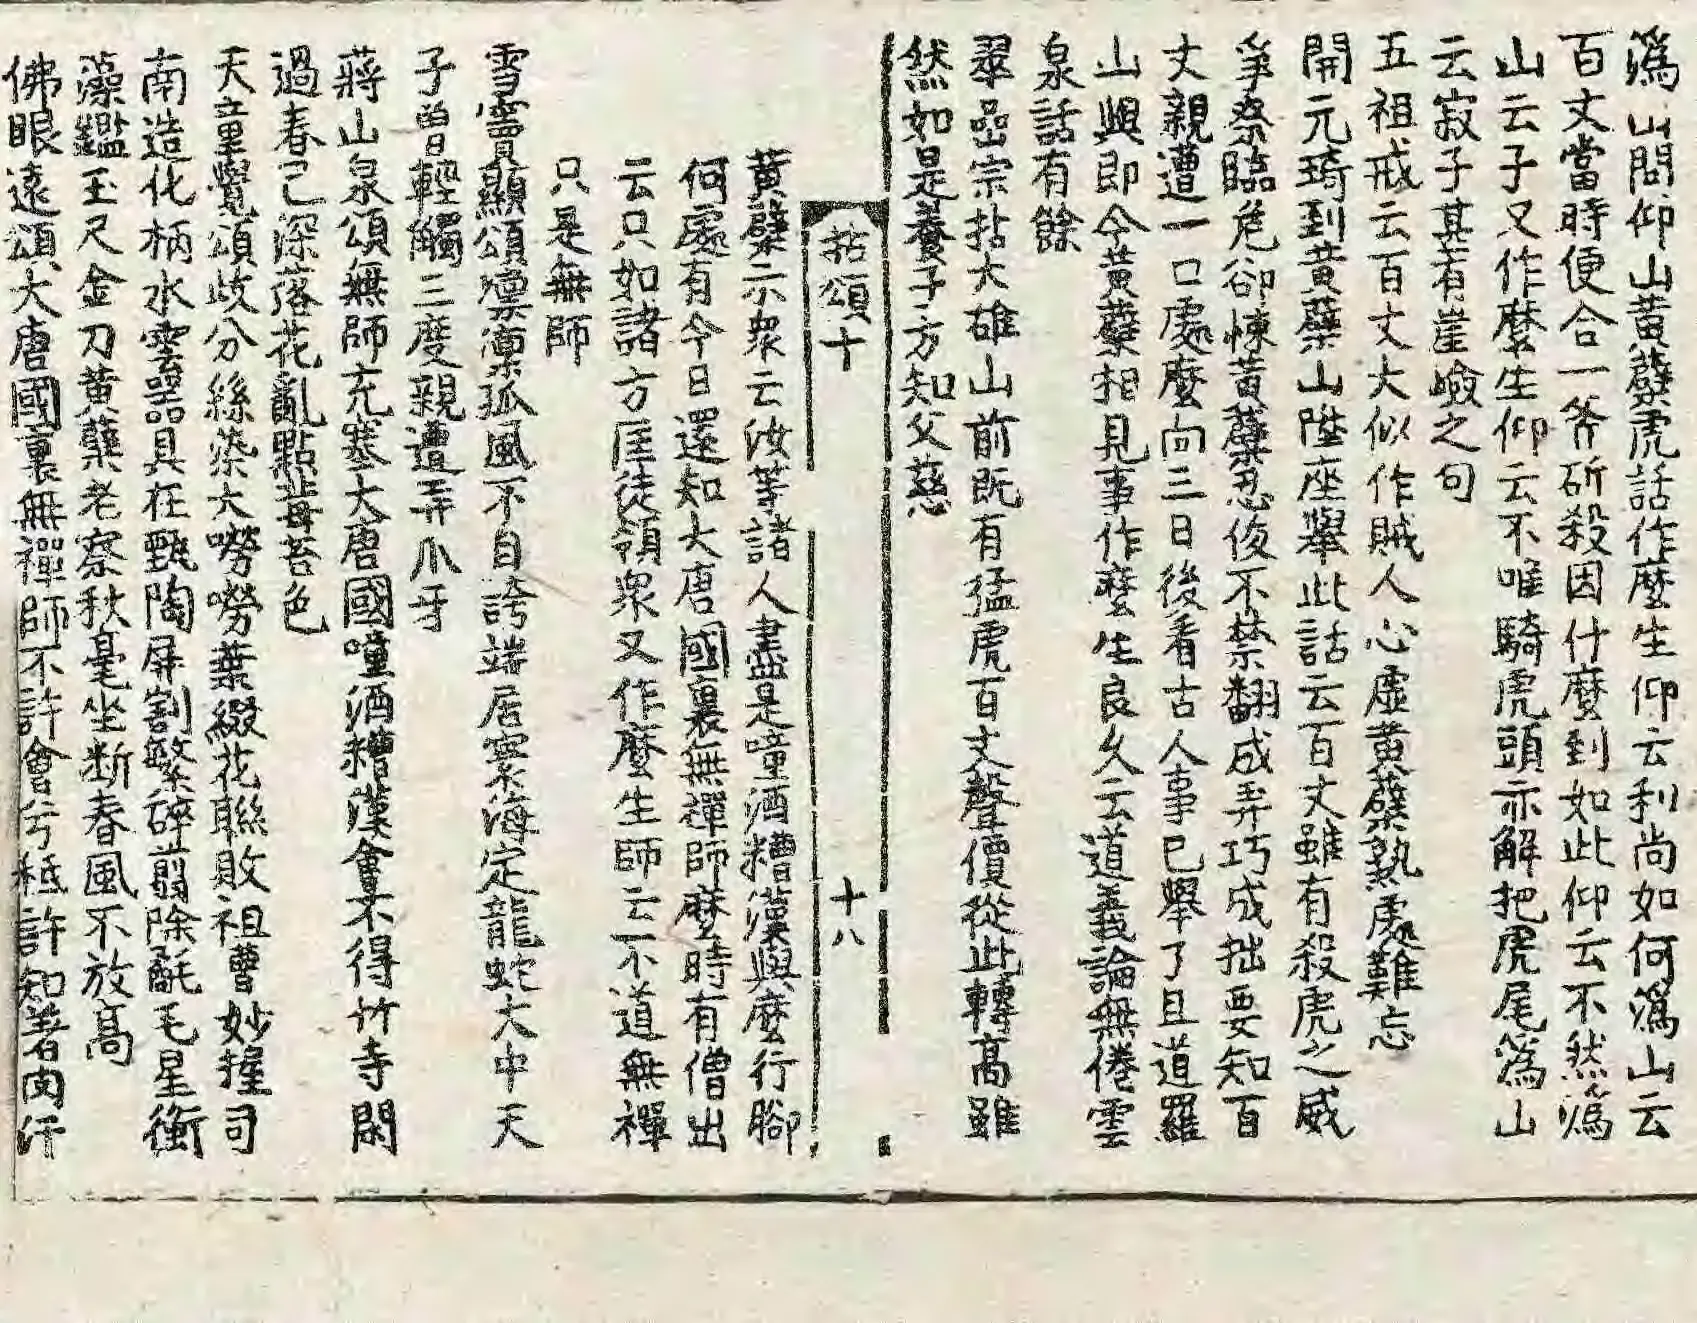 潙山問仰山黃蘗虎話作麽生仰云和尚如何潙山云
百丈當時便合一斧斫殺因什麽到如此仰云不然潙
山云子又作麽生仰云不唯騎虎頭亦解把虎尾潙山
云寂子甚有崖嶮之句
五祖戒云百丈大似作賊人心虛黃蘗熟處難忘
開元琦到黃蘗山陞座擧此話云百丈雖有殺虎之威
爭奈臨危卻悚黃蘗忍俊不禁翻成弄巧成拙要知百
丈親遭一口處麽向三日後看古人事已擧了且道羅
山與卽今黃蘗相見事作麽生良久云道義論無倦雲
泉話有餘
翠嵓宗拈大雄山前旣有猛虎百丈聲價從此轉高雖
然如是養子方知父慈
拈頌十 十八
黃蘗示衆云汝等諸人盡是噇酒糟漢與麽行腳
何處有今日還知大唐國裏無禪師麽時有僧出
云只如諸方匡徒領衆又作麽生師云不道無禪
只是無師
雪竇顯頌凛凛孤風不自誇端居寰海定龍蛇大中天
子曾輕觸三度親遭弄爪牙
蔣山泉頌無師充塞大唐國噇酒糟漢會不得竹寺閑
過春已深落花亂點莓苔色
天童覺頌歧分絲染大嘮嘮葉綴花聯敗祖曹妙握司
南造化柄水雲器具在甄陶屏割繁碎翦除氄毛星衡
藻鑑玉尺金刀黃蘗老察秋毫坐斷春風不放高
佛眼遠頌大唐國裏無禪師不許會兮秪許知著肉汗